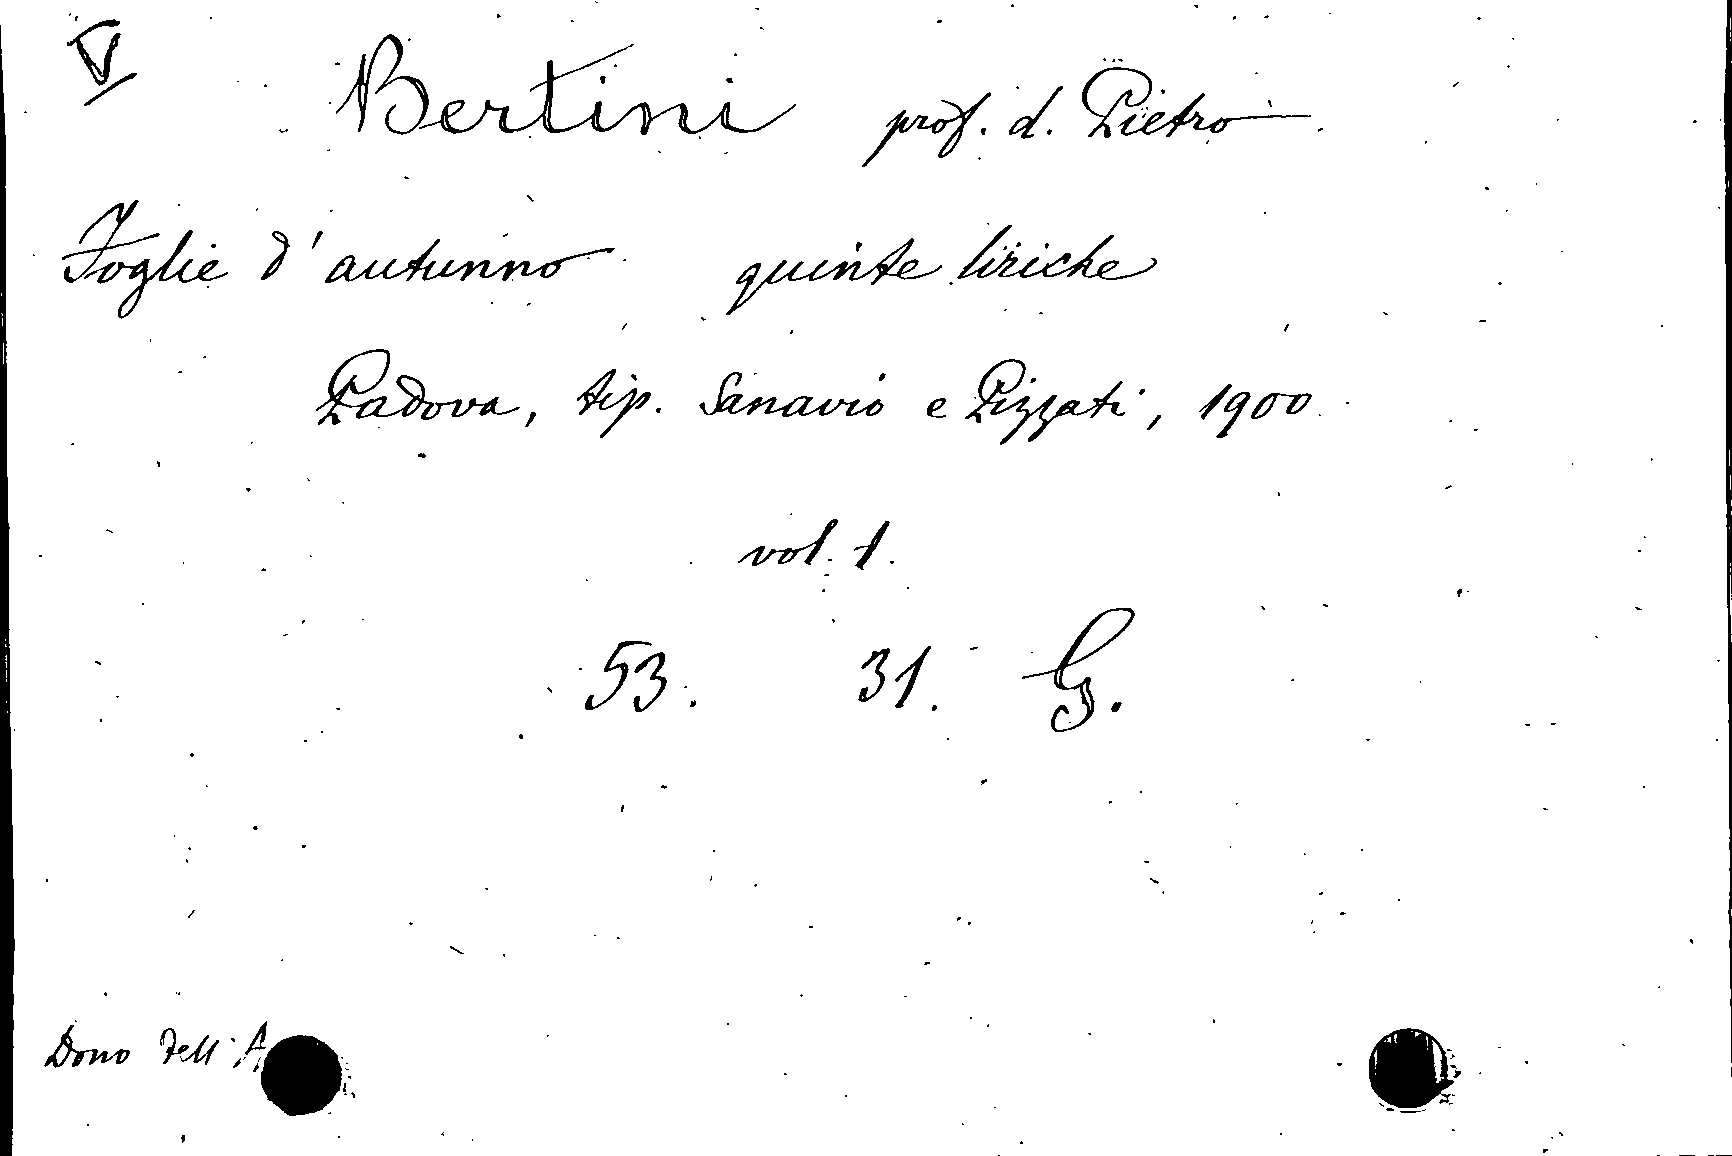 V
Bertini prof. d. Pietro
Foglie d'autunno quinte liriche
Padova, tip. Sanavio e Pizzati, 1900
vol. 1.
53. 31. G.
Dono dell'A